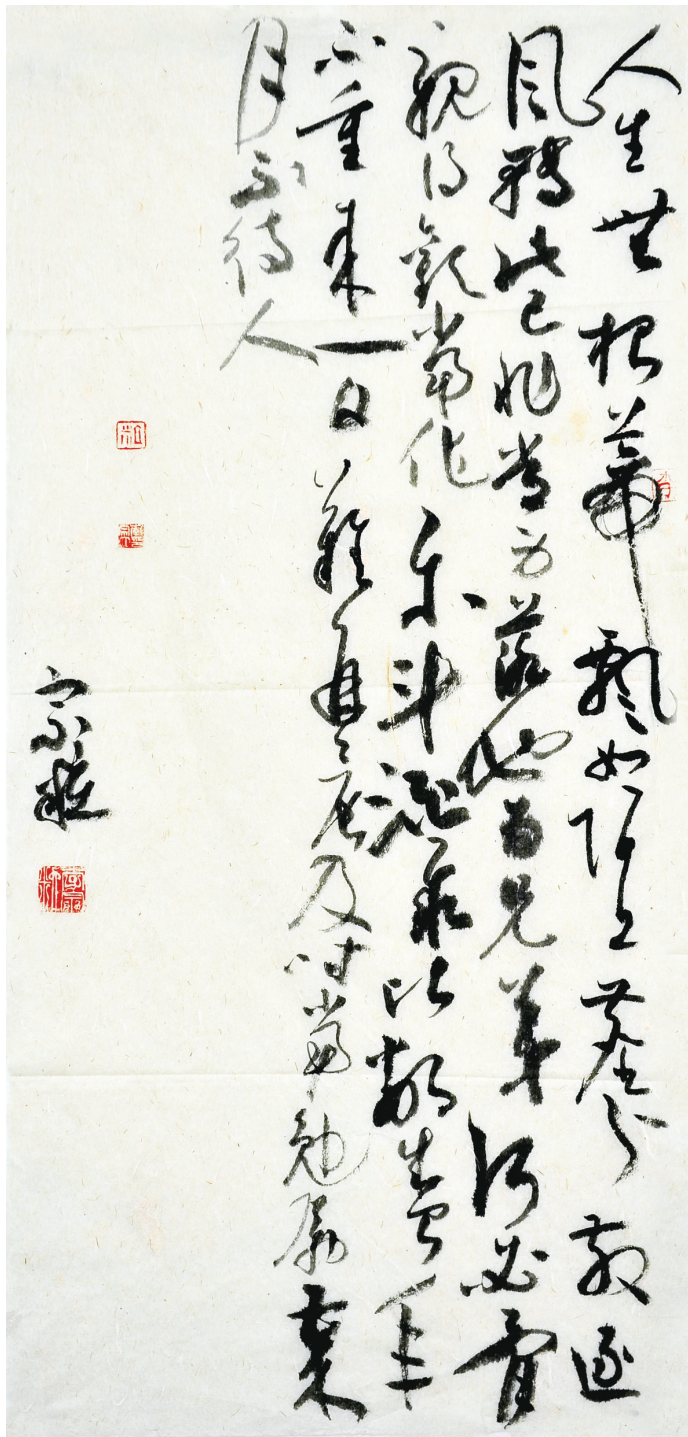 人生無根蒂飄如陌上塵分散逐
風轉此已非常身落地為兄弟何必骨
親得歡當作樂斗酒聚比鄰盛年
不重來一日難再晨及時當勉勵歲
月不待人